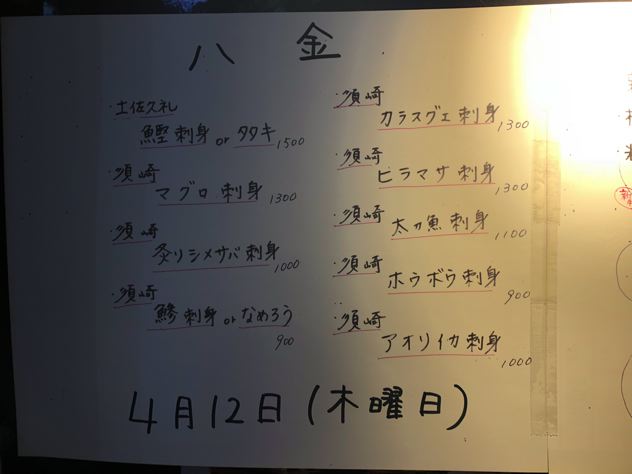 八金
・土佐久礼
鰹刺身 or タタキ 1500
・須崎
マグロ刺身 1300
・須崎
炙りシメサバ刺身 1000
・須崎
鯵刺身 or なめろう 900
・須崎
カラスグエ刺身 1300
・須崎
ヒラマサ刺身 1300
・須崎
太刀魚刺身 1100
・須崎
ホウボウ刺身 900
・須崎
アオリイカ刺身 1000
4月12日(木曜日)